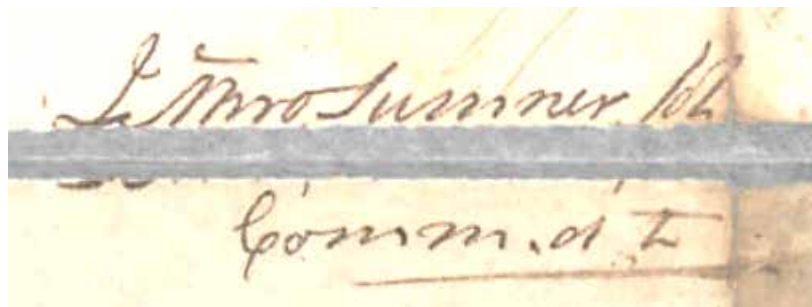 Jethro Sumner Col
Comm.dt